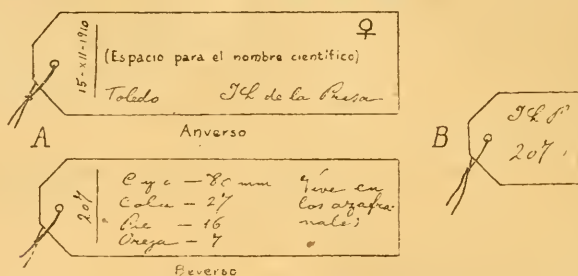 15-XII-1910
♀
(Espacio para el nombre científico)
Toledo
de la Presa
A
Anverso
207
C y c — 80 mm
Cola — 27
Pie — 16
Oreja — 7
Vive en
los azafra-
nales
Reverso
B
207